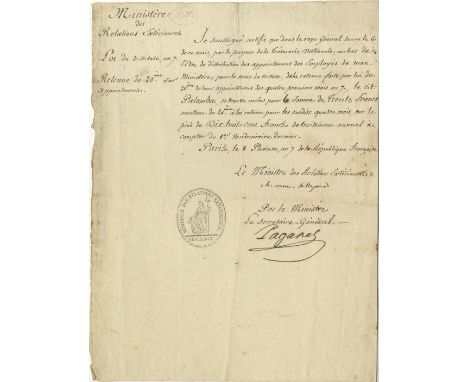 Ministère
des
Relations Extérieures
Loi du 3 nivose an 7
Retenue du 20eme sur
appointemens.
Je soussigné certifie que dans le reçu Général donné le 6
de ce mois par le payeur de la Trésorerie Nationale, au bas de
l'état de distribution des appointemens des Employés de mon
Ministère, pour le mois de nivose, de la retenue faite par lui du
20eme de leurs appointemens des quatre premiers mois an 7, le Cit
Palamba se trouve inclus pour la somme de Trente francs
montant du 20eme à lui retenu pour les susdits quatre mois, sur le
pied de Dix huit cent francs de traitement annuel à
compter du 1er Vendemiaire dernier.
Paris le 8 Pluviose an 7 de la République française
Le Ministre des Relations Extérieures
Par le Ministre
Le Secretaire Général
Paganel